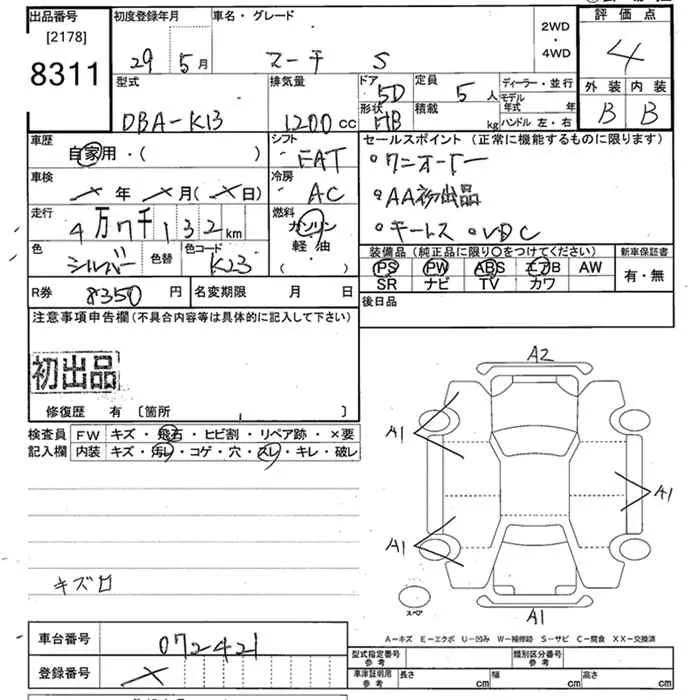 出品番号 初度登録年月 車名・グレード 2WD・4WD 評価点
[2178]
8311 29年 5月 マーチ S 4
型式 排気量 ドア 5D 定員 5人 ディーラー・並行 外装 内装
DBA-K13 1200cc 形状 HB 積載 kg モデル年式 年 B B
ハンドル 左・右
車歴 シフト セールスポイント(正常に機能するものに限ります)
自家用・( ) FAT ・ワンオーナー
車検 冷房 AC ・AA初出品
×年×月(×日)
走行 燃料 ・キーレス ・VDC
4万7千132km ガソリン
色 色替 色コード 軽油 装備品(純正品に限り○をつけてください) 新車保証書
シルバー K23 ・( ) PS PW ABS エアB AW 有・無
SR ナビ TV カワ
R券 8350円 名変期限 月 日 後日品
注意事項申告欄(不具合内容等は具体的に記入して下さい)
初出品
修復歴 有 [箇所 ]
検査員 FW キズ・飛石・ヒビ割・リペア跡・×要
記入欄 内装 キズ・汚レ・コゲ・穴・スレ・キレ・破レ
A2
A1
A1
A1
A1
スペア
キズ
A-キズ E-エクボ U-凹み W-補修跡 S-サビ C-腐食 XX-交換済
車台番号 072421
登録番号 ×
型式指定番号 参考 類別区分番号 参考
車庫証明用 参考 長さ cm 幅 cm 高さ cm